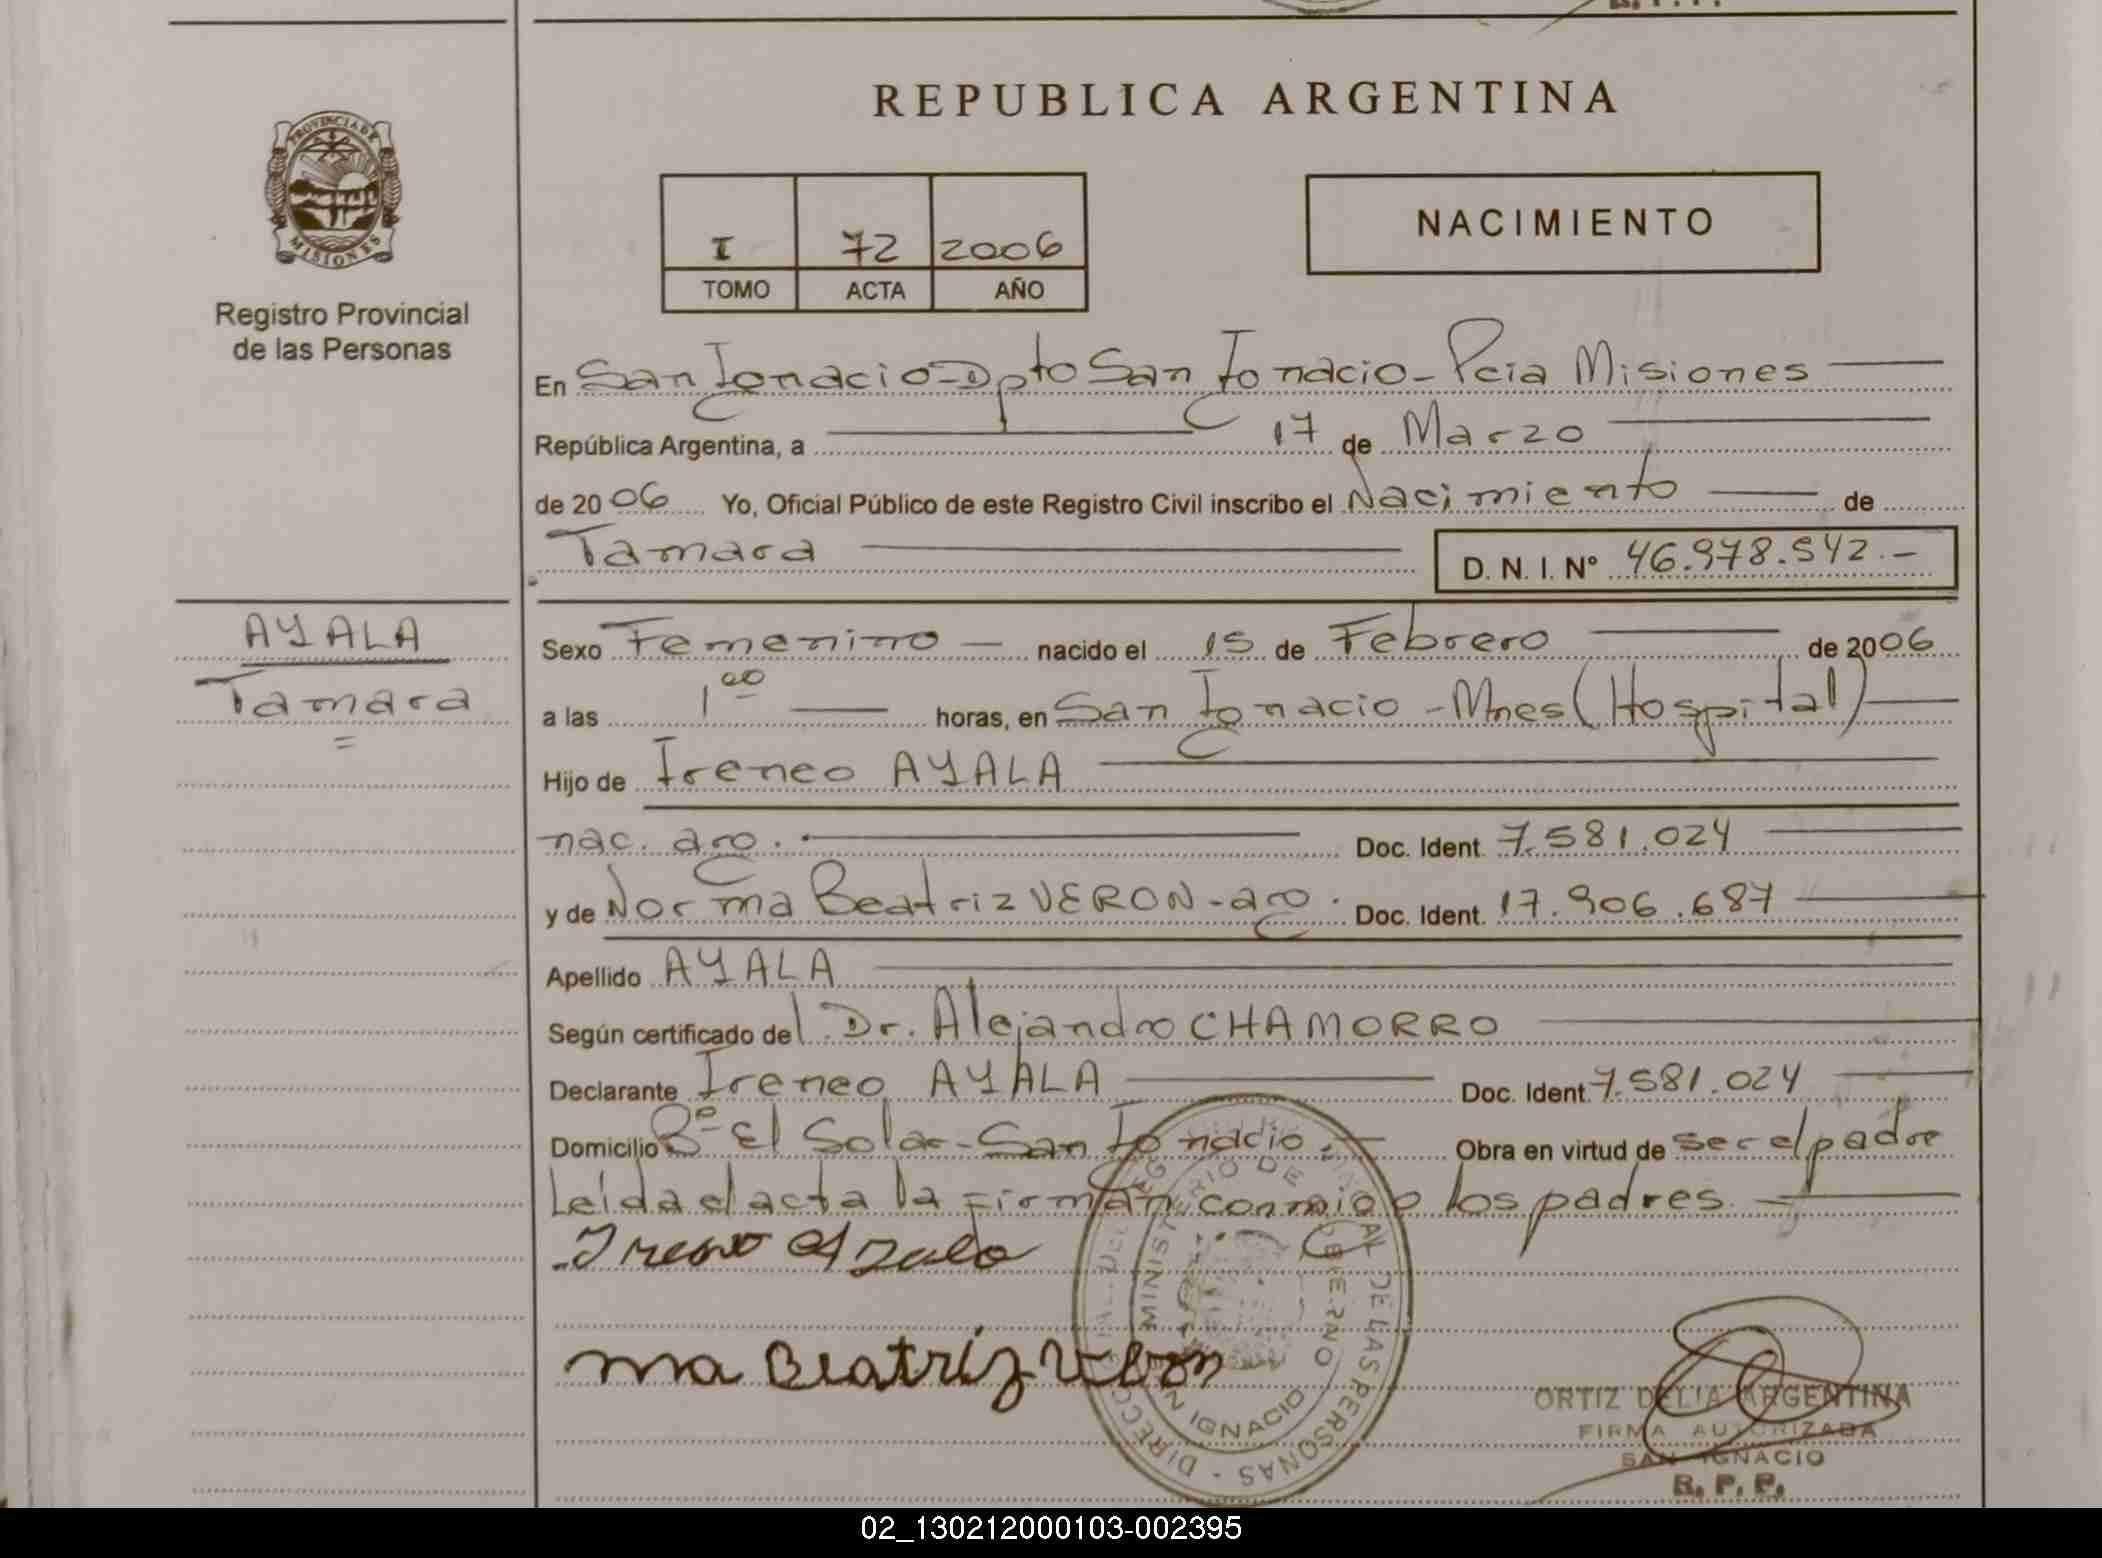 REPUBLICA ARGENTINA
PROVINCIA DE MISIONES
Registro Provincial
de las Personas
I 72 2006
TOMO ACTA AÑO
NACIMIENTO
En San Ignacio - Dpto San Ignacio - Pcia Misiones
República Argentina, a 17 de Marzo
de 2006 Yo, Oficial Público de este Registro Civil inscribo el Nacimiento de
Tamara D. N. I. Nº 46.978.542.-
AYALA
Tamara
Sexo Femenino nacido el 15 de Febrero de 2006
a las 1 00 horas, en San Ignacio - Mnes (Hospital)
Hijo de Ireneo AYALA
nac. arg. Doc. Ident. 7.581.024
y de Norma Beatriz VERON - arg. Doc. Ident. 17.906.687
Apellido AYALA
Según certificado del Dr. Alejandro CHAMORRO
Declarante Ireneo AYALA Doc. Ident. 7.581.024
Domicilio Bº El Solar - San Ignacio.- Obra en virtud de ser el padre
Leída el acta la firman conmigo los padres.
Ireneo Ayala
ma Beatríz Veron
MINISTERIO DE GOBIERNO
SAN IGNACIO
DE LAS PERSONAS
ORTIZ DELIA ARGENTINA
FIRMA AUTORIZADA
SAN IGNACIO
R. P. P.
02_130212000103-002395